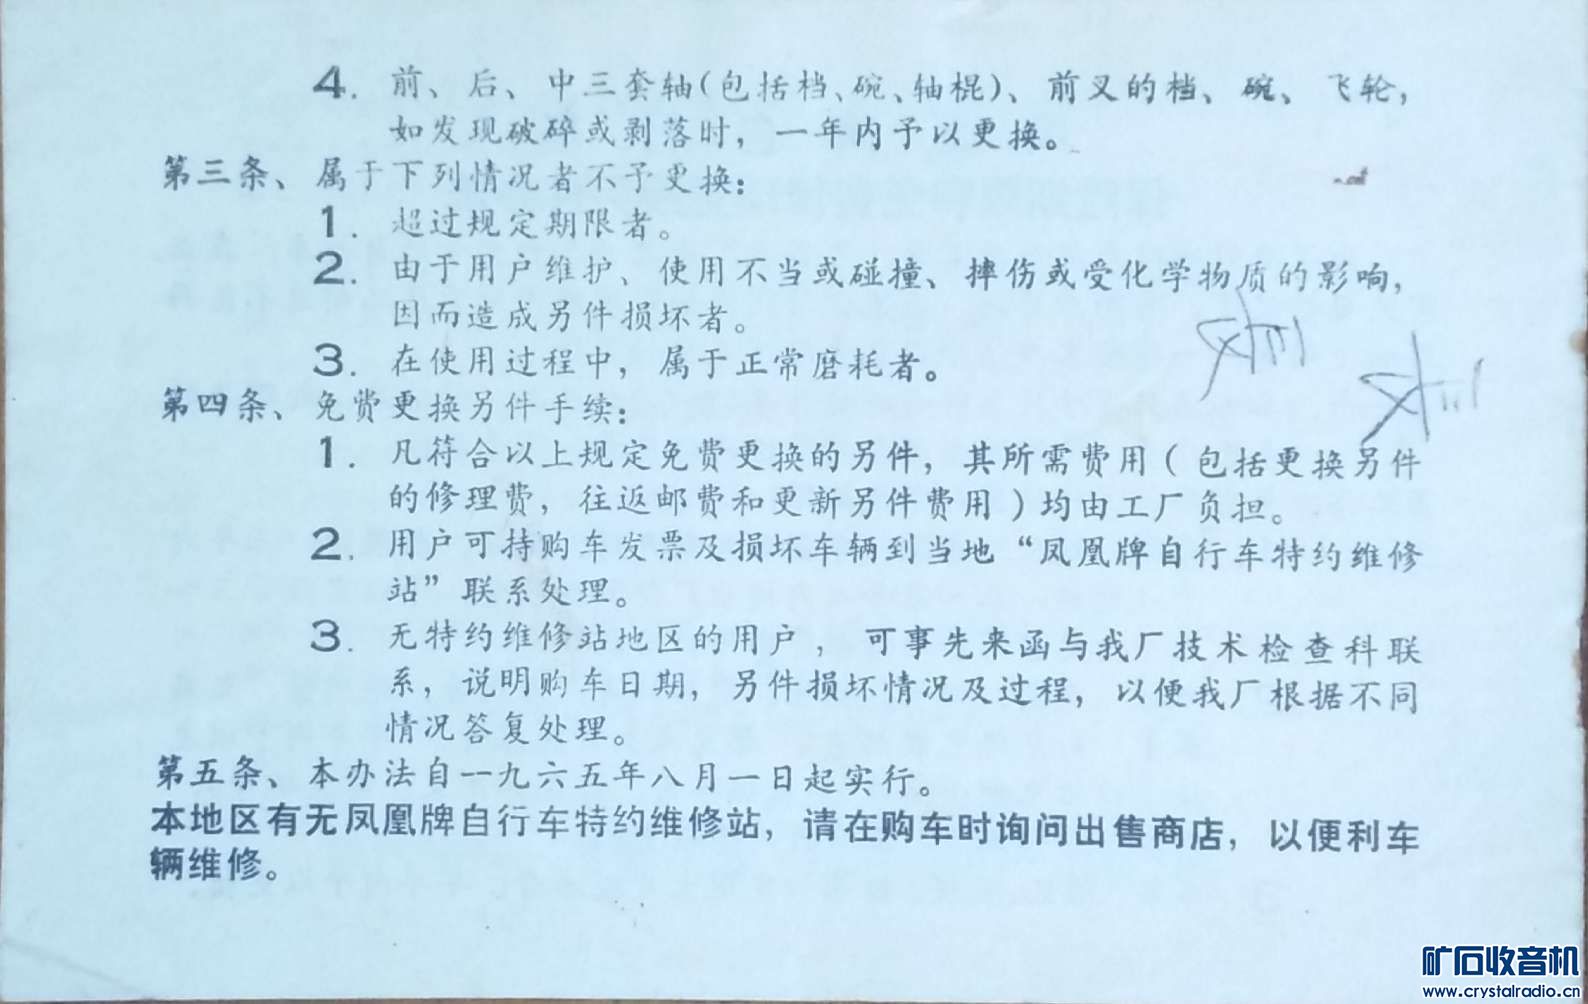 4. 前、后、中三套轴(包括档、碗、轴棍)、前叉的档、碗、飞轮，
如发现破碎或剥落时，一年内予以更换。
第三条、属于下列情况者不予更换：
1. 超过规定期限者。
2. 由于用户维护、使用不当或碰撞、摔伤或受化学物质的影响，
因而造成另件损坏者。
3. 在使用过程中，属于正常磨耗者。
第四条、免费更换另件手续：
1. 凡符合以上规定免费更换的另件，其所需费用(包括更换另件
的修理费，往返邮费和更新另件费用)均由工厂负担。
2. 用户可持购车发票及损坏车辆到当地“凤凰牌自行车特约维修
站”联系处理。
3. 无特约维修站地区的用户，可事先来函与我厂技术检查科联
系，说明购车日期，另件损坏情况及过程，以便我厂根据不同
情况答复处理。
第五条、本办法自一九六五年八月一日起实行。
本地区有无凤凰牌自行车特约维修站，请在购车时询问出售商店，以便利车
辆维修。
矿石收音机
www.crystalradio.cn